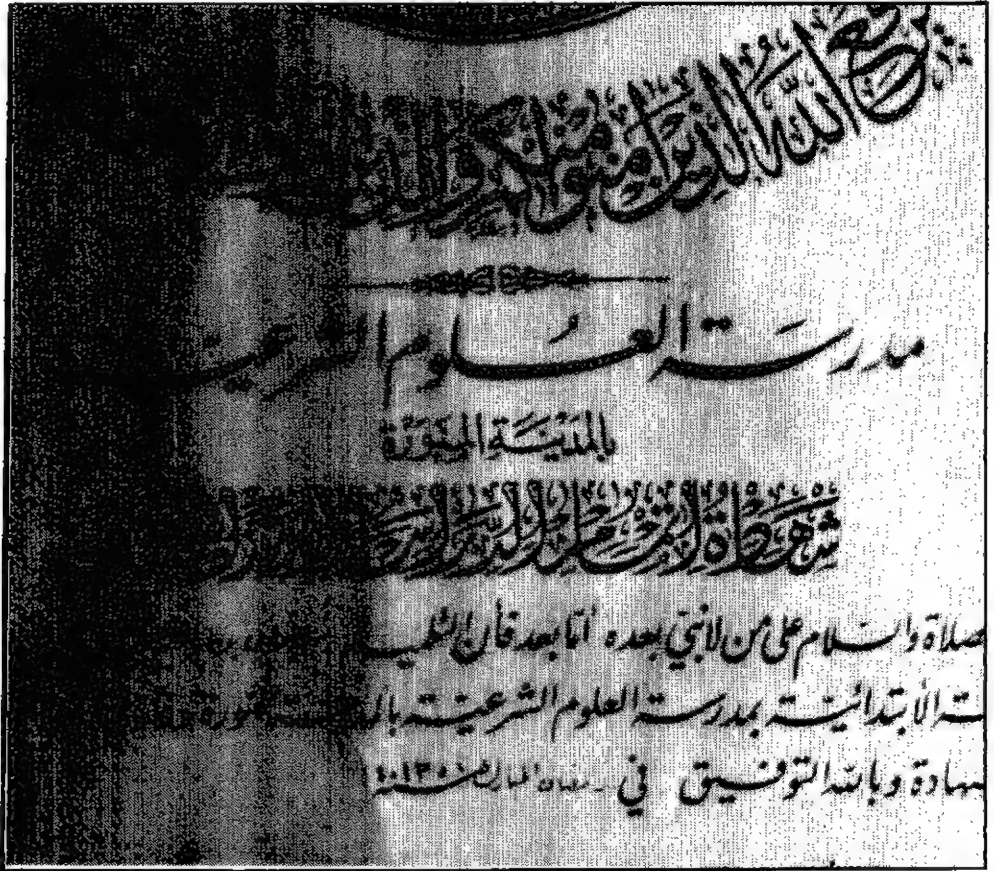 يرفع الله الذين امنوا منكم والذين
مدرسة العلوم الشرعية
بالمدينة المنورة
شهادة إتمام الدراسة
صلاة والسلام على من لا نبي بعده أما بعد فأن التلميذ
ـة الأبتدائية بمدرسة العلوم الشرعية بالمدينة المنورة
شهادة وبالله التوفيق في رمضان المبارك سنة